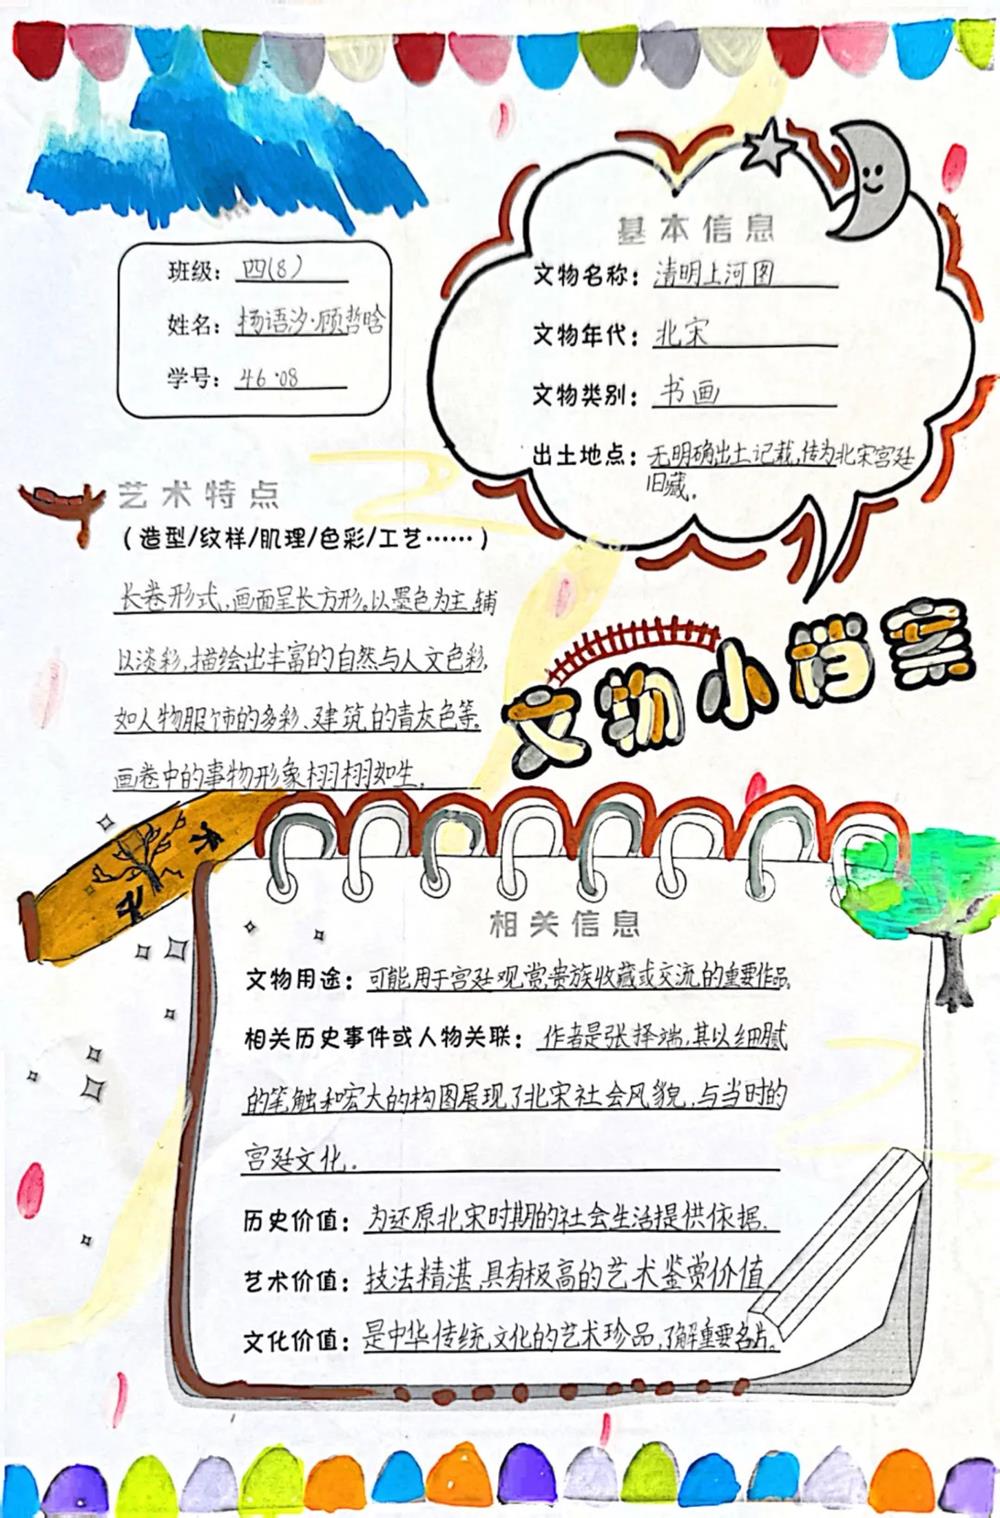 班级：四(8)
姓名：杨语汐·顾哲晗
学号：46·08
基本信息
文物名称：清明上河图
文物年代：北宋
文物类别：书画
出土地点：无明确出土记载，传为北宋宫廷
旧藏。
艺术特点
（造型/纹样/肌理/色彩/工艺……）
长卷形式，画面呈长方形。以墨色为主，辅
以淡彩，描绘出丰富的自然与人文色彩，
如人物服饰的多彩、建筑的青灰色等。
画卷中的事物形象栩栩如生。
文物小档案
相关信息
文物用途：可能用于宫廷观赏，贵族收藏或交流的重要作品。
相关历史事件或人物关联：作者是张择端，其以细腻
的笔触和宏大的构图展现了北宋社会风貌，与当时的
宫廷文化．
历史价值：为还原北宋时期的社会生活提供依据．
艺术价值：技法精湛，具有极高的艺术鉴赏价值
文化价值：是中华传统文化的艺术珍品，了解重要名片。